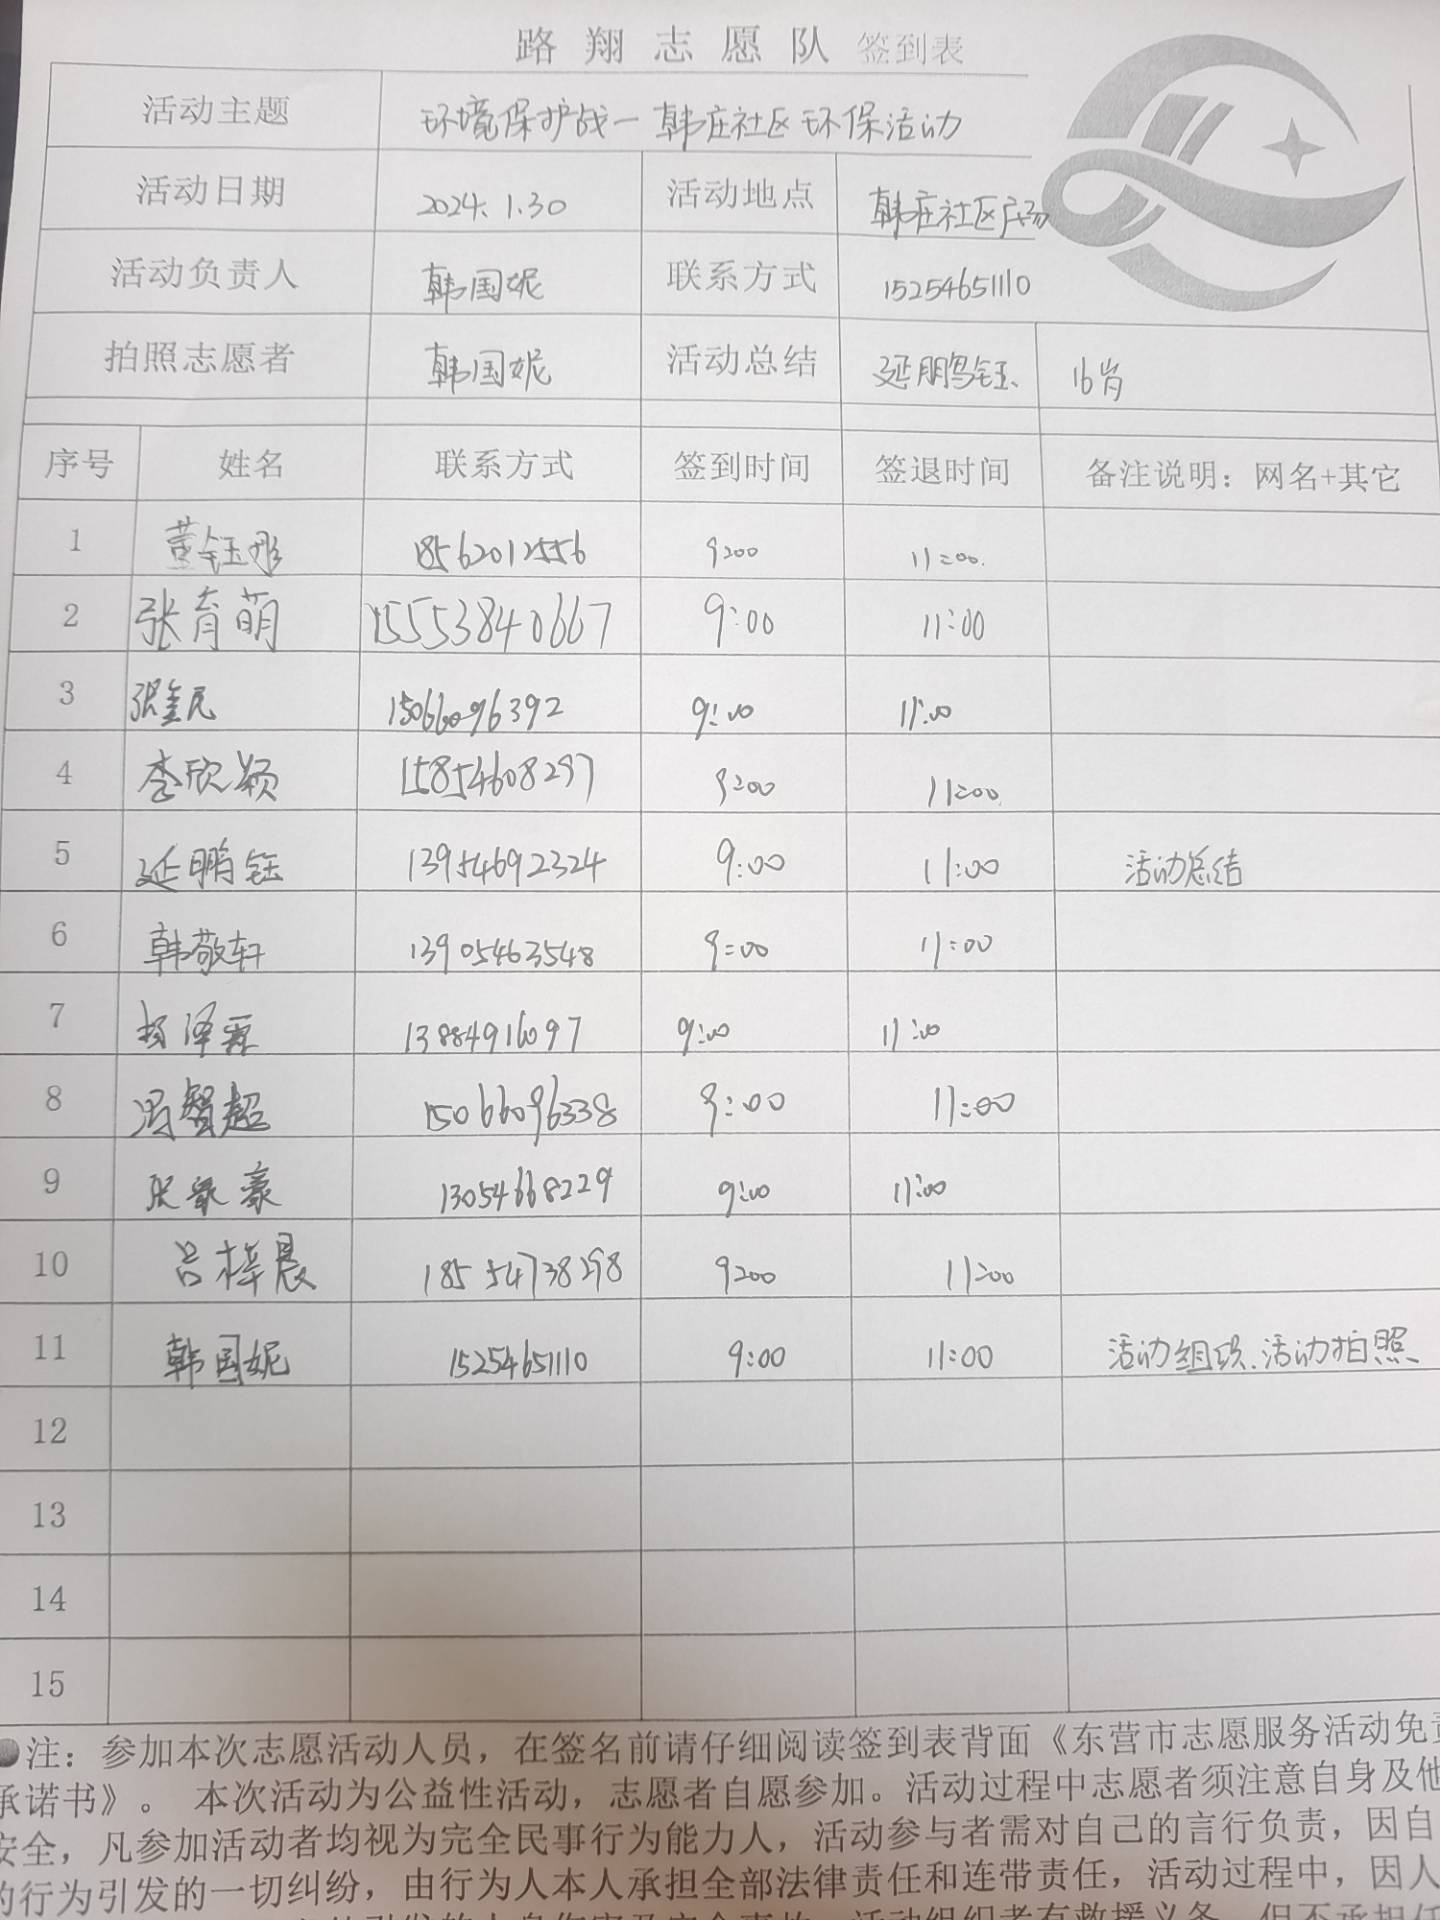 路翔志愿队 签到表
活动主题 环境保护战一韩庄社区环保活动
活动日期 2024.1.30 活动地点 韩庄社区广场
活动负责人 韩国妮 联系方式 15254651110
拍照志愿者 韩国妮 活动总结 延鹏钰、 16岁
序号 姓名 联系方式 签到时间 签退时间 备注说明：网名+其它
1 董钰彤 18562012556 9:00 11:00.
2 张育萌 15553840667 9:00 11:00
3 张金民 15066096392 9:00 11:00
4 李欣颖 15854608297 9:00 11:00
5 延鹏钰 13954692324 9:00 11:00 活动总结
6 韩敬轩 13905463548 9:00 11:00
7 杨泽霖 13884916097 9:00 11:00
8 冯智超 15066096338 9:00 11:00
9 张家豪 13054668229 9:00 11:00
10 吕梓晨 18554738298 9:00 11:00
11 韩国妮 15254651110 9:00 11:00 活动组织.活动拍照
12
13
14
15
●注：参加本次志愿活动人员，在签名前请仔细阅读签到表背面《东营市志愿服务活动免责
承诺书》。 本次活动为公益性活动，志愿者自愿参加。活动过程中志愿者须注意自身及他
安全，凡参加活动者均视为完全民事行为能力人，活动参与者需对自己的言行负责，因自
的行为引发的一切纠纷，由行为人本人承担全部法律责任和连带责任，活动过程中，因人
活动组织者有救援义务，但不承担任